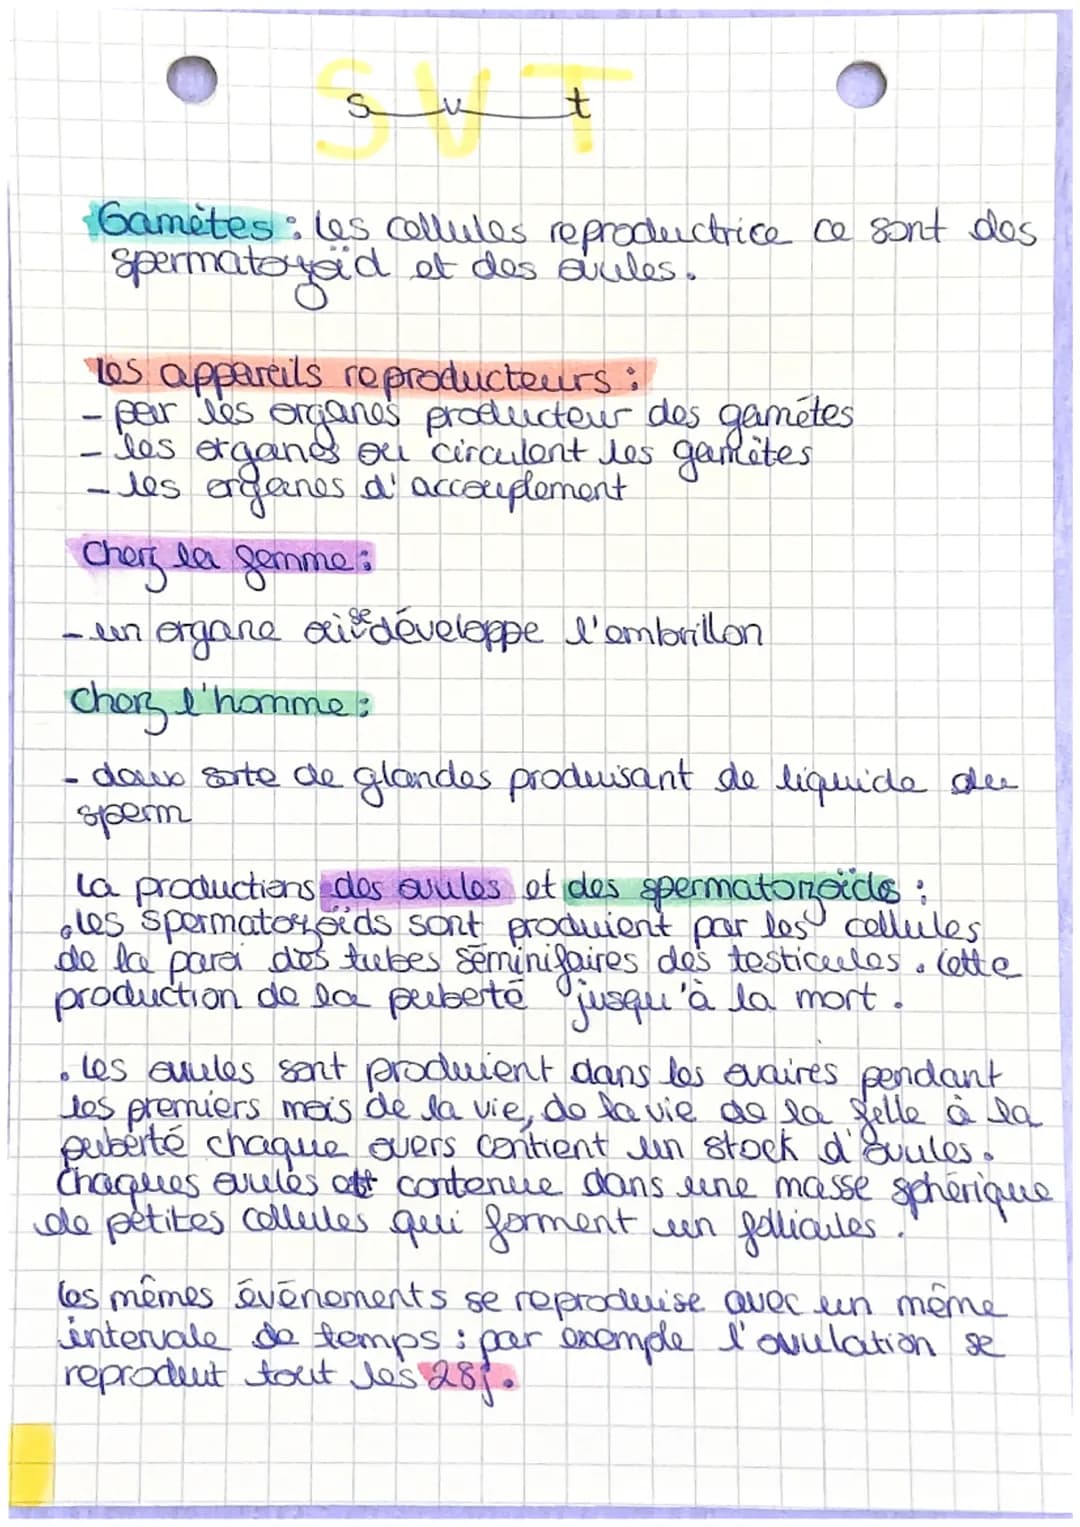 SVT
svt
Gamètes : les cellules reproductrice ce sont des
spermatozoïd et des ovules.
les appareils reproducteurs :
- par les organes producteur des gamétes
- les organes ou circulent les gamètes
- les organes d'accouplement
Chez la femme :
- un organe où se développe l'embrillon
Chez l'homme :
- deux sorte de glandes produisant de liquide du
sperm
La productions des ovules et des spermatozoïdes :
. les spermatozoïds sont produient par les cellules
de la paroi des tubes séminifaires des testicules. Cette
production de la puberté jusqu'à la mort.
. les ovules sont produient dans les ovaires pendant
les premiers mois de la vie, de la vie de la felle à la
puberté chaque overs contient un stock d'ovules.
Chaques ovules est contenue dans une masse sphérique
de petites cellules qui forment un follicules.
les mêmes événements se reproduise avec un même
intervale de temps : par exemple l'ovulation se
reproduit tout les 28j.